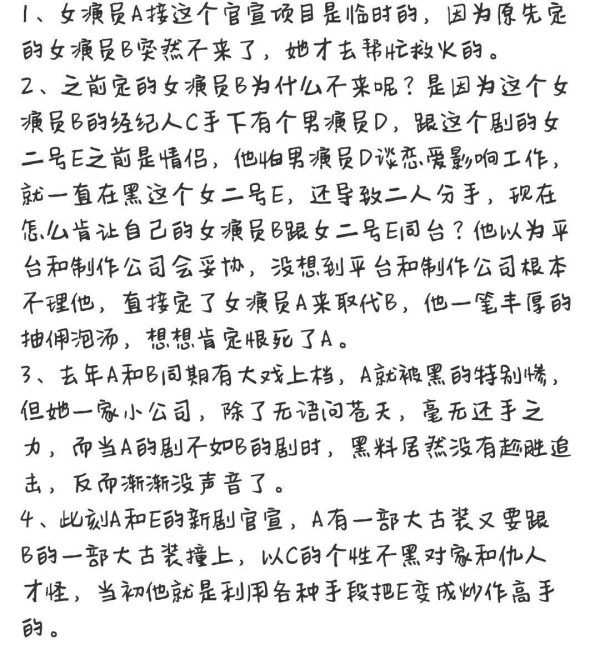 1、女演员A接这个官宣项目是临时的，因为原先定
的女演员B突然不来了，她才去帮忙救火的。
2、之前定的女演员B为什么不来呢？是因为这个女
演员B的经纪人C手下有个男演员D，跟这个剧的女
二号E之前是情侣，他怕男演员D谈恋爱影响工作，
就一直在黑这个女二号E，还导致二人分手，现在
怎么肯让自己的女演员B跟女二号E同台？他以为平
台和制作公司会妥协，没想到平台和制作公司根本
不理他，直接定了女演员A来取代B，他一笔丰厚的
抽佣泡汤，想想肯定恨死了A。
3、去年A和B同期有大戏上档，A就被黑的特别惨，
但她一家小公司，除了无语问苍天，毫无还手之
力，而当A的剧不如B的剧时，黑料居然没有趁胜追
击，反而渐渐没声音了。
4、此刻A和E的新剧官宣，A有一部大古装又要跟
B的一部大古装撞上，以C的个性不黑对家和仇人
才怪，当初他就是利用各种手段把E变成炒作高手
的。